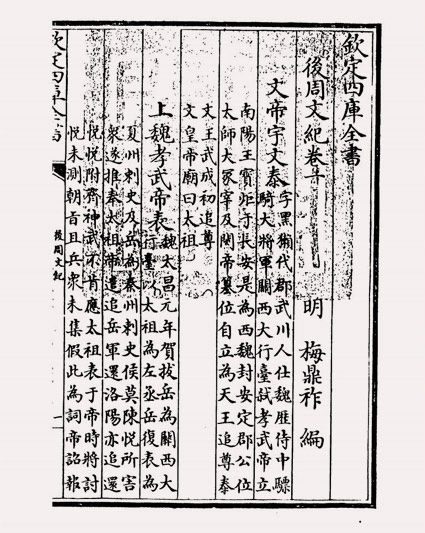 欽定四庫全書
後周文紀卷
明 梅鼎祚 編
文帝宇文泰
字黑獺代郡武川人仕魏歴侍中驃
騎大將軍關西大行臺弑孝武帝立
南陽王寳炬于長安是為西魏封安定郡公位
太師大冢宰及閔帝簒位自立為天王追尊泰
文王武成初追尊
文皇帝廟曰太祖
上魏孝武帝表
魏太昌元年賀拔岳為關西大
行臺以太祖為左丞岳復表為
夏州刺史及岳為秦州刺史侯莫陳悦所害
衆遂推奉太祖帝遣追岳軍還洛陽亦追還
悦悦附齊神武不肯應太祖表于帝時將討
悦未測朝旨且兵衆未集假此為詞帝詔報
欽定四庫全書
後周文紀
一